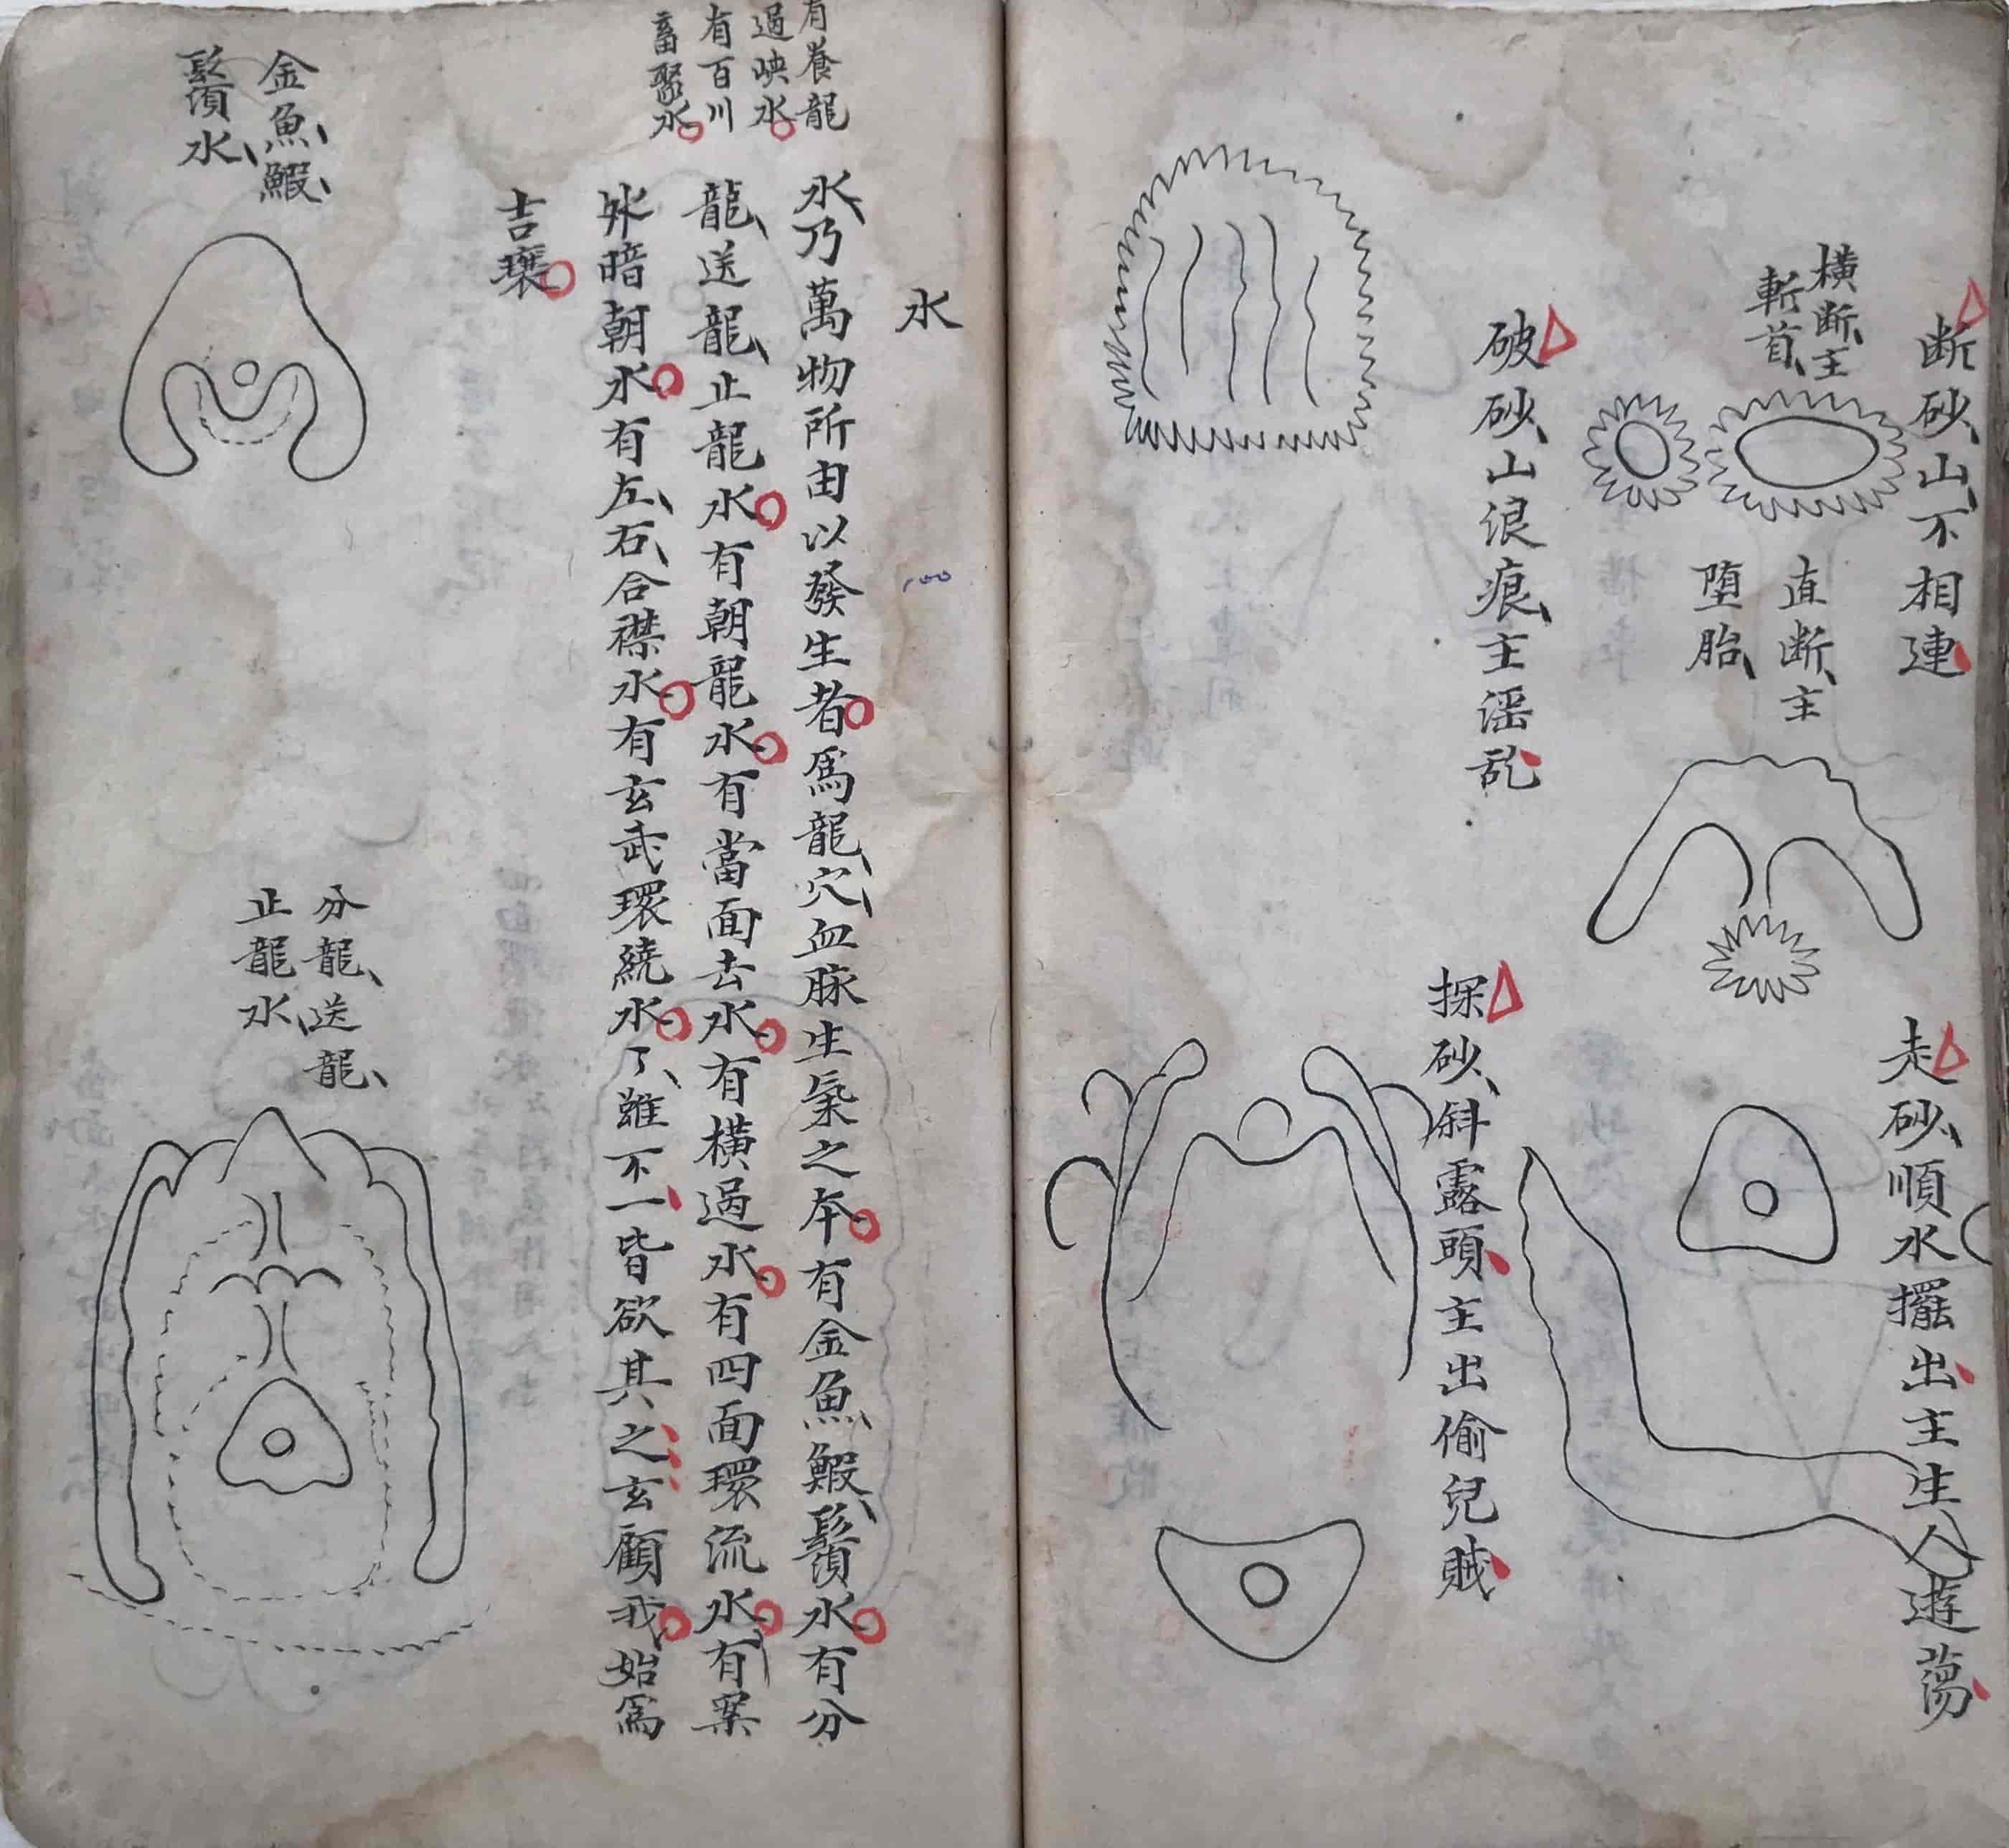 断砂山不相連
横断主
斬首
直断主
堕胎
走砂順水擺出主生人遊蕩
破砂山浪痕主淫乱
探砂斜露頭主出偷兒賊
水
有養龍
過峡水
有百川
畜聚水
水乃萬物所由以發生者爲龍穴血脉生氣之本有金魚鰕鬚水有分
龍送龍止龍水有朝龍水有當面去水有橫過水有四面環流水有案
外暗朝水有左右合襟水有玄武環繞水了雖不一皆欲其之玄顧我始爲
吉壤
金魚鰕
鬚水
分龍送龍
止龍水